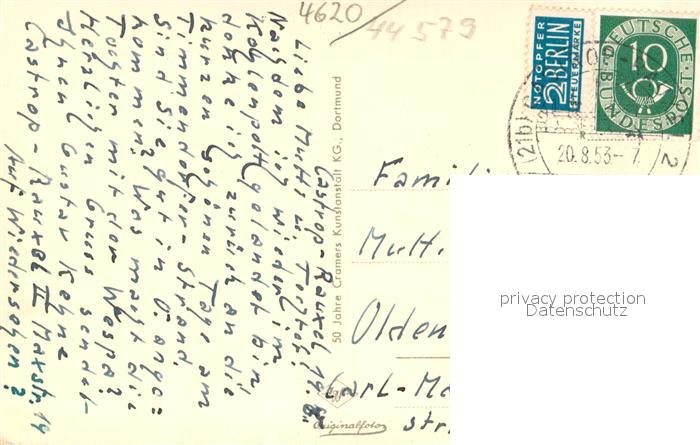 4620
44579
Castrop-Rauxel 19.8.
Liebe Mutti u. Tochter!
Nachdem ich wieder im
Kohlenpott gelandet bin
denke ich zurück an die
kurzen schönen Tage am
Timmendorfer-Strand.
Sind Sie gut in O. ange=
kommen? Was macht die
Tochter mit der Vespa?
Herzlichen Gruss sendet
Ihnen Gustav Kehne
Castrop-Rauxel II Maxstr. 14
Auf Wiedersehen?
50 Jahre Cramers Kunstanstalt KG., Dortmund
Originalfoto
NOTOPFER
2 BERLIN
STEUERMARKE
DEUTSCHE
10
BUNDESPOST
(21b)
20.8.53-7
2
Famili
Mutt.
Olden
Carl-Ma
str.
privacy protection
Datenschutz